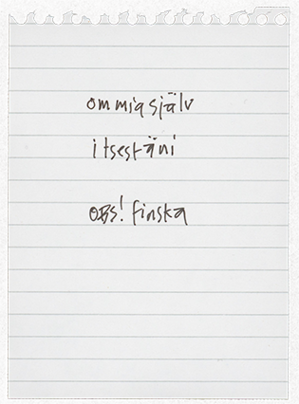 om mig själv
itsestäni
OBS! finska